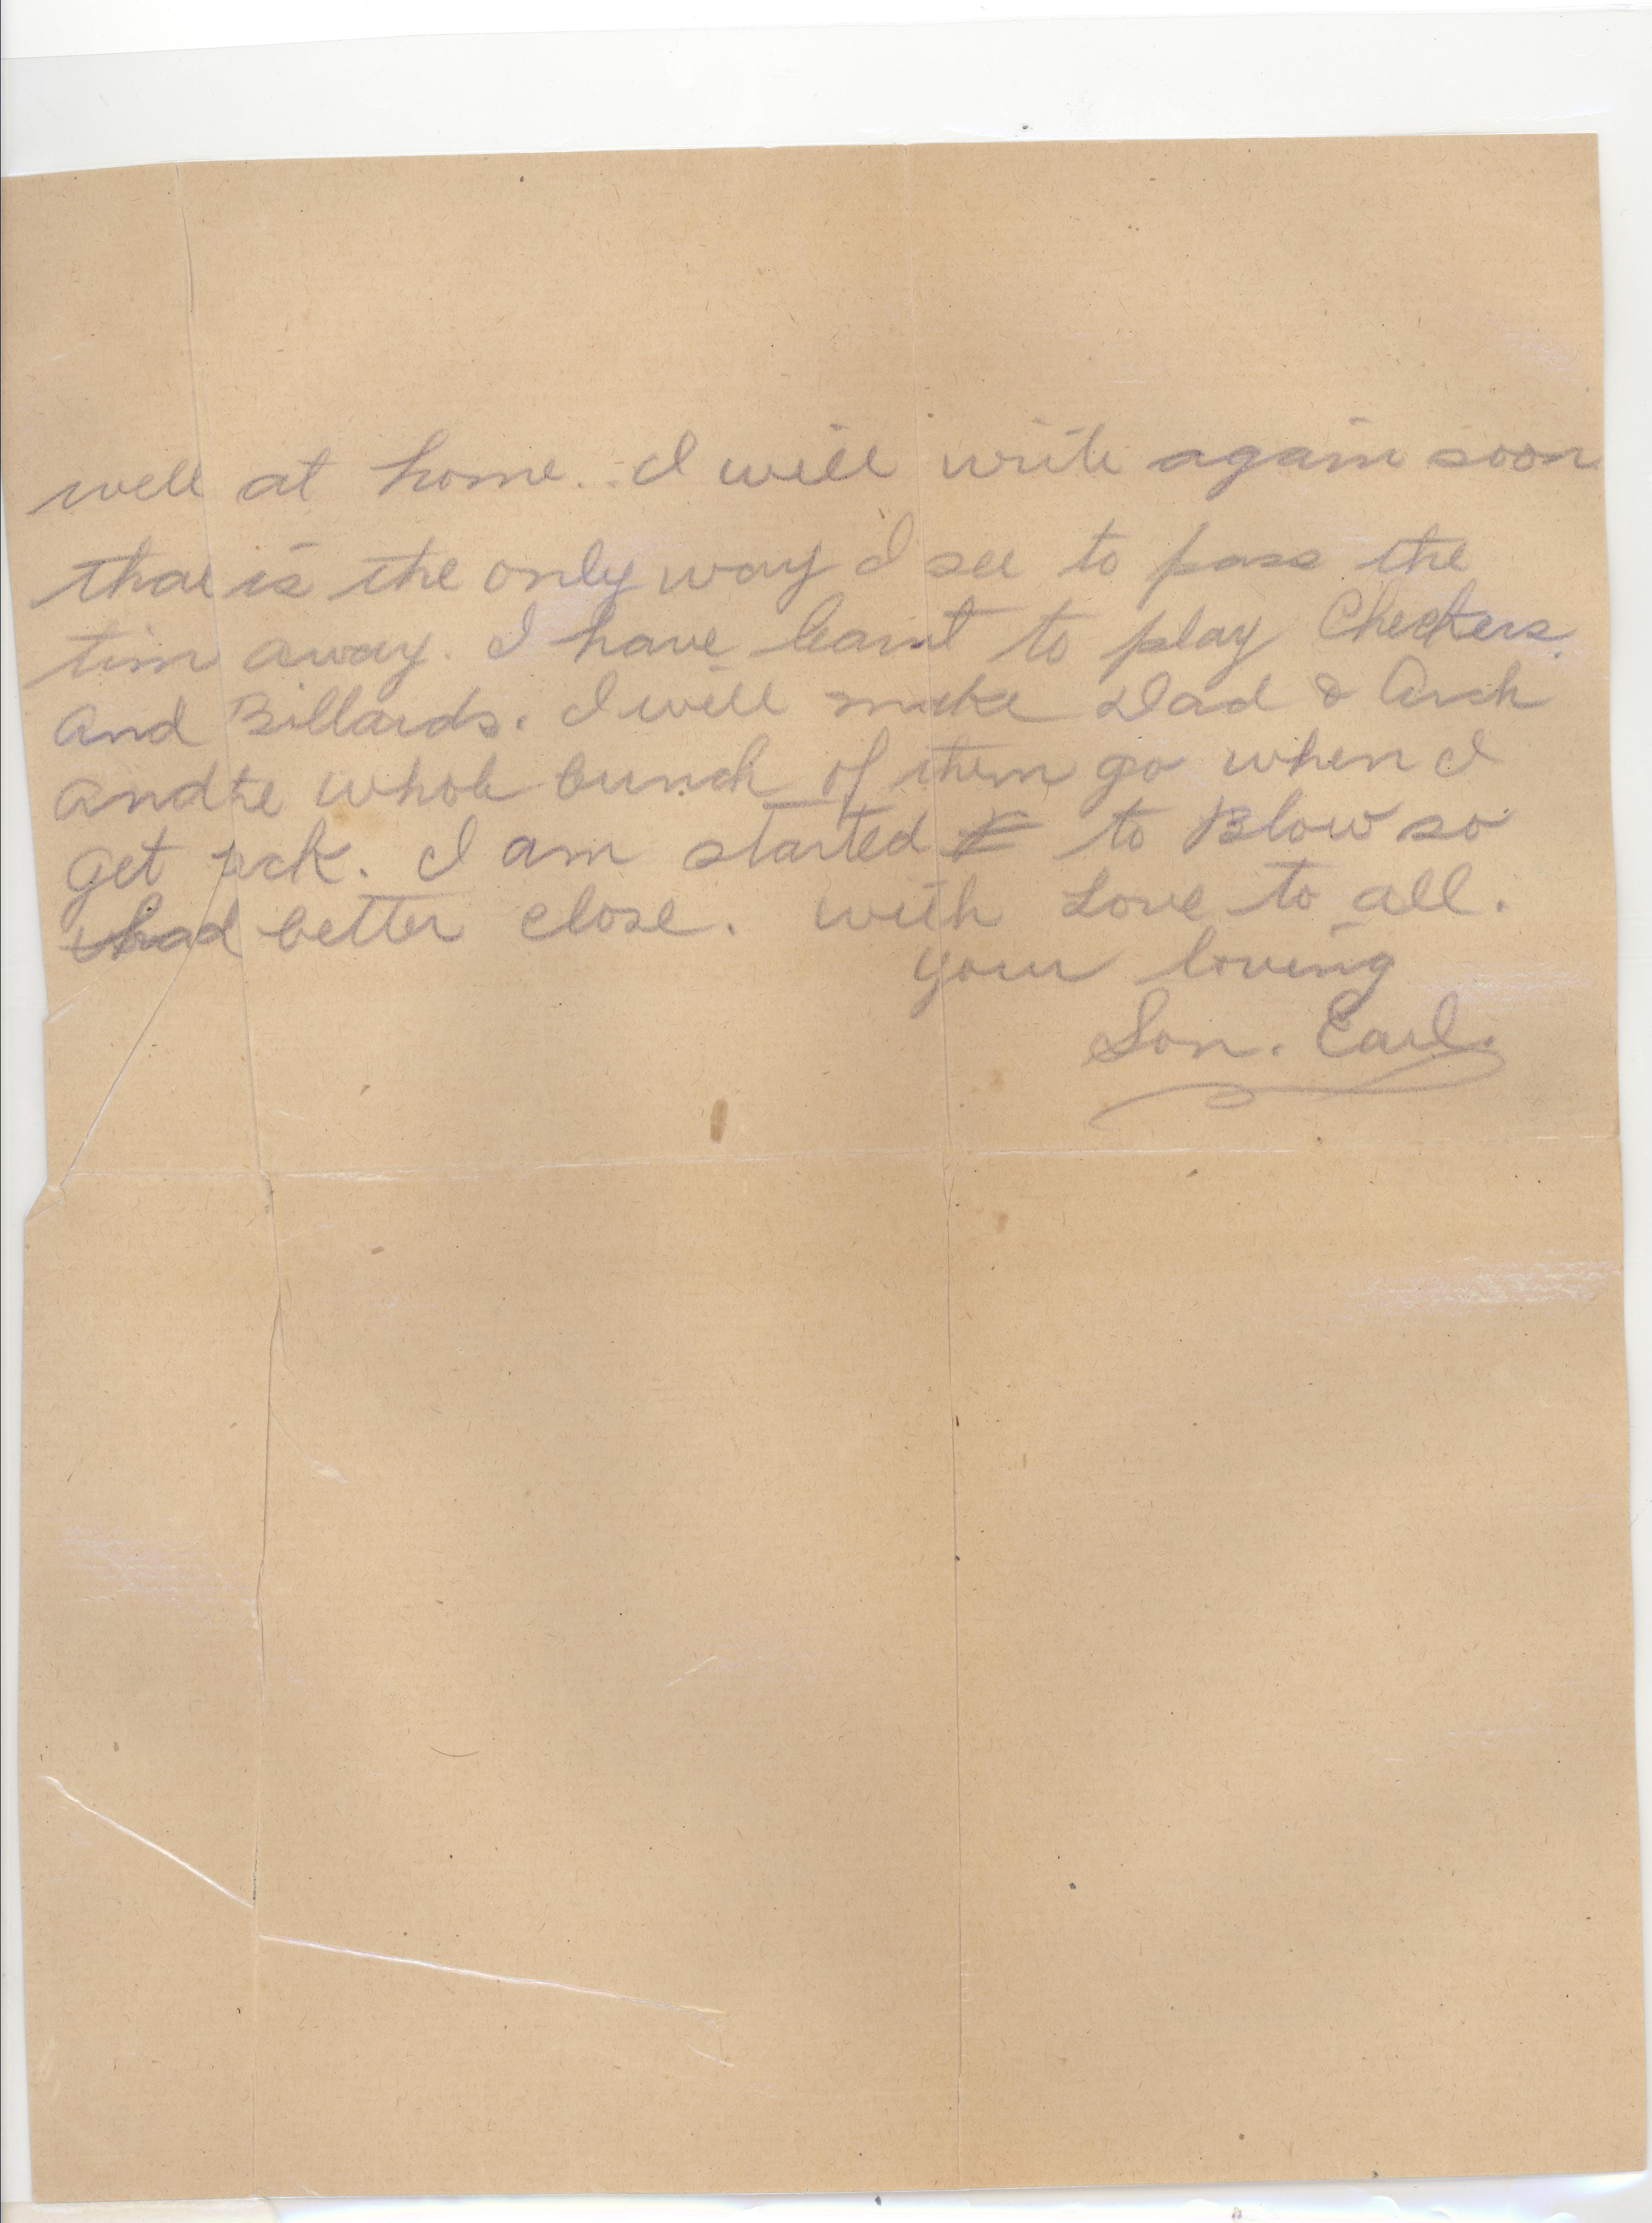 well at home. I will write again soon
that is the only way I see to pass the
tim away. I have learnt to play Checkers.
And Billards. I will make Dad & Arch
and the whole bunch of them go when I
get back. I am started to Blow so
had better close. with Love to all.
your loving
Son. Earl.